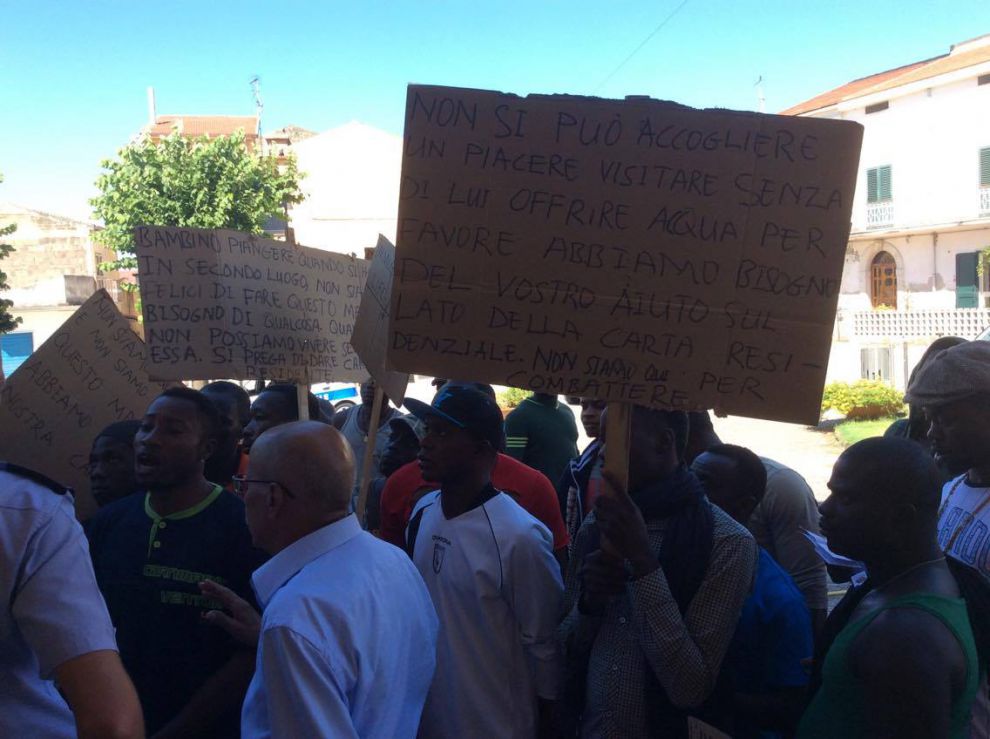 NON SI PUÒ ACCOGLIERE
UN PIACERE VISITARE SENZA
DI LUI OFFRIRE ACQUA PER
FAVORE ABBIAMO BISOGNO
DEL VOSTRO AIUTO SUL
LATO DELLA CARTA RESI-
DENZIALE. NON STARAO QUI
PER
COMBATTERE
BAMBINO PIANGERE QUANDO SI
IN SECONDO LUOGO, NON SIA
FELICI DI FARE QUESTO MA
BISOGNO DI QUALCOSA. QUA
NON POSSIAMO VIVERE SE
ESSA. SI PREGA DI DARE CA
RESIDENTE
NON SIAM
E NON SIAMO
QUESTO M
ABBIAMO
NOSTRA